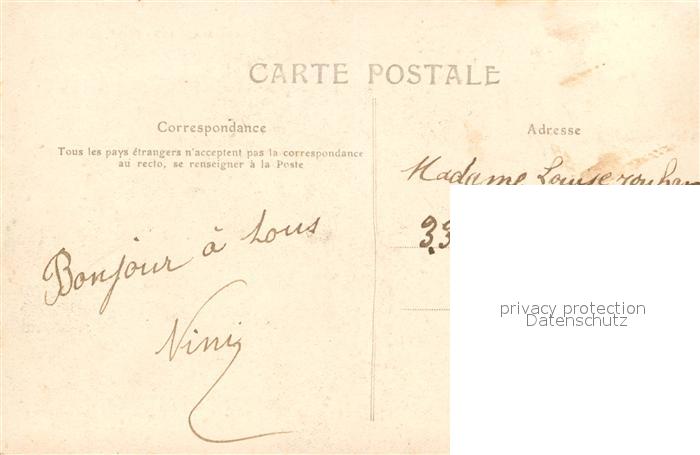 CARTE POSTALE
Correspondance
Tous les pays étrangers n'acceptent pas la correspondance
au recto, se renseigner à la Poste
Bonjour à tous
Nini
Adresse
Madame Louise
33
privacy protection
Datenschutz